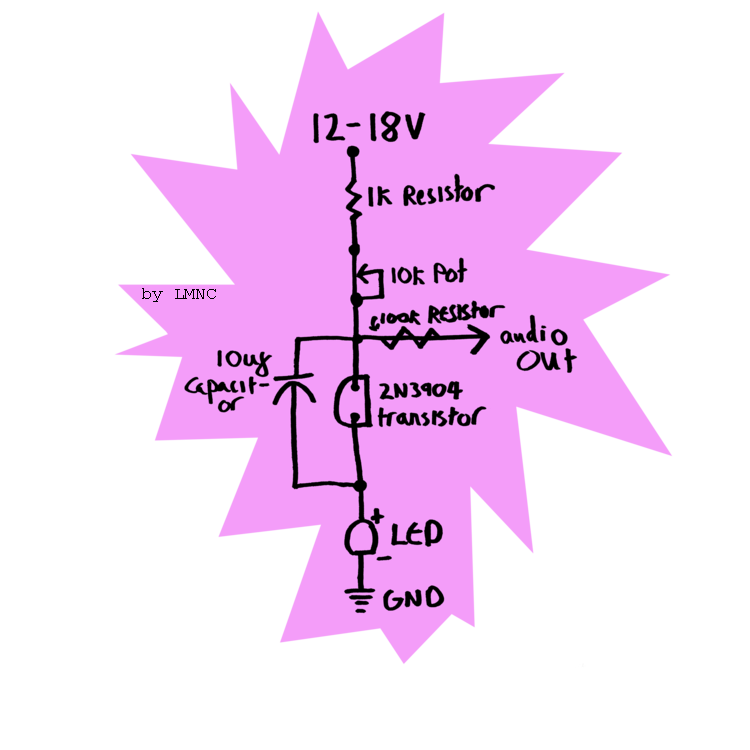 12-18V
1K Resistor
10K Pot
by LMNC
100k Resistor
audio
out
10uf
capacit-
or
2N3904
transistor
+
LED
-
GND